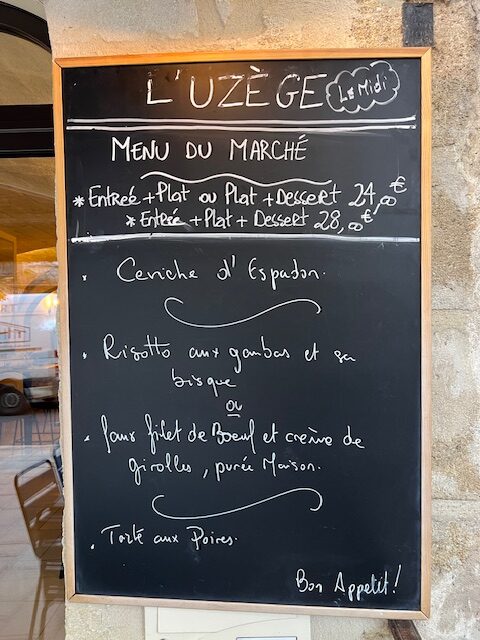 L'UZÈGE
Le Midi
MENU DU MARCHÉ
* Entreé + Plat ou Plat + Dessert 24,00€
* Entrée + Plat + Dessert 28,00€
. Ceviche d'Espadon.
. Risotto aux gambas et sa
bisque
ou
. faux filet de Boeuf et crème de
girolles, purée Maison.
. Tarte aux Poires.
Bon Appetit!